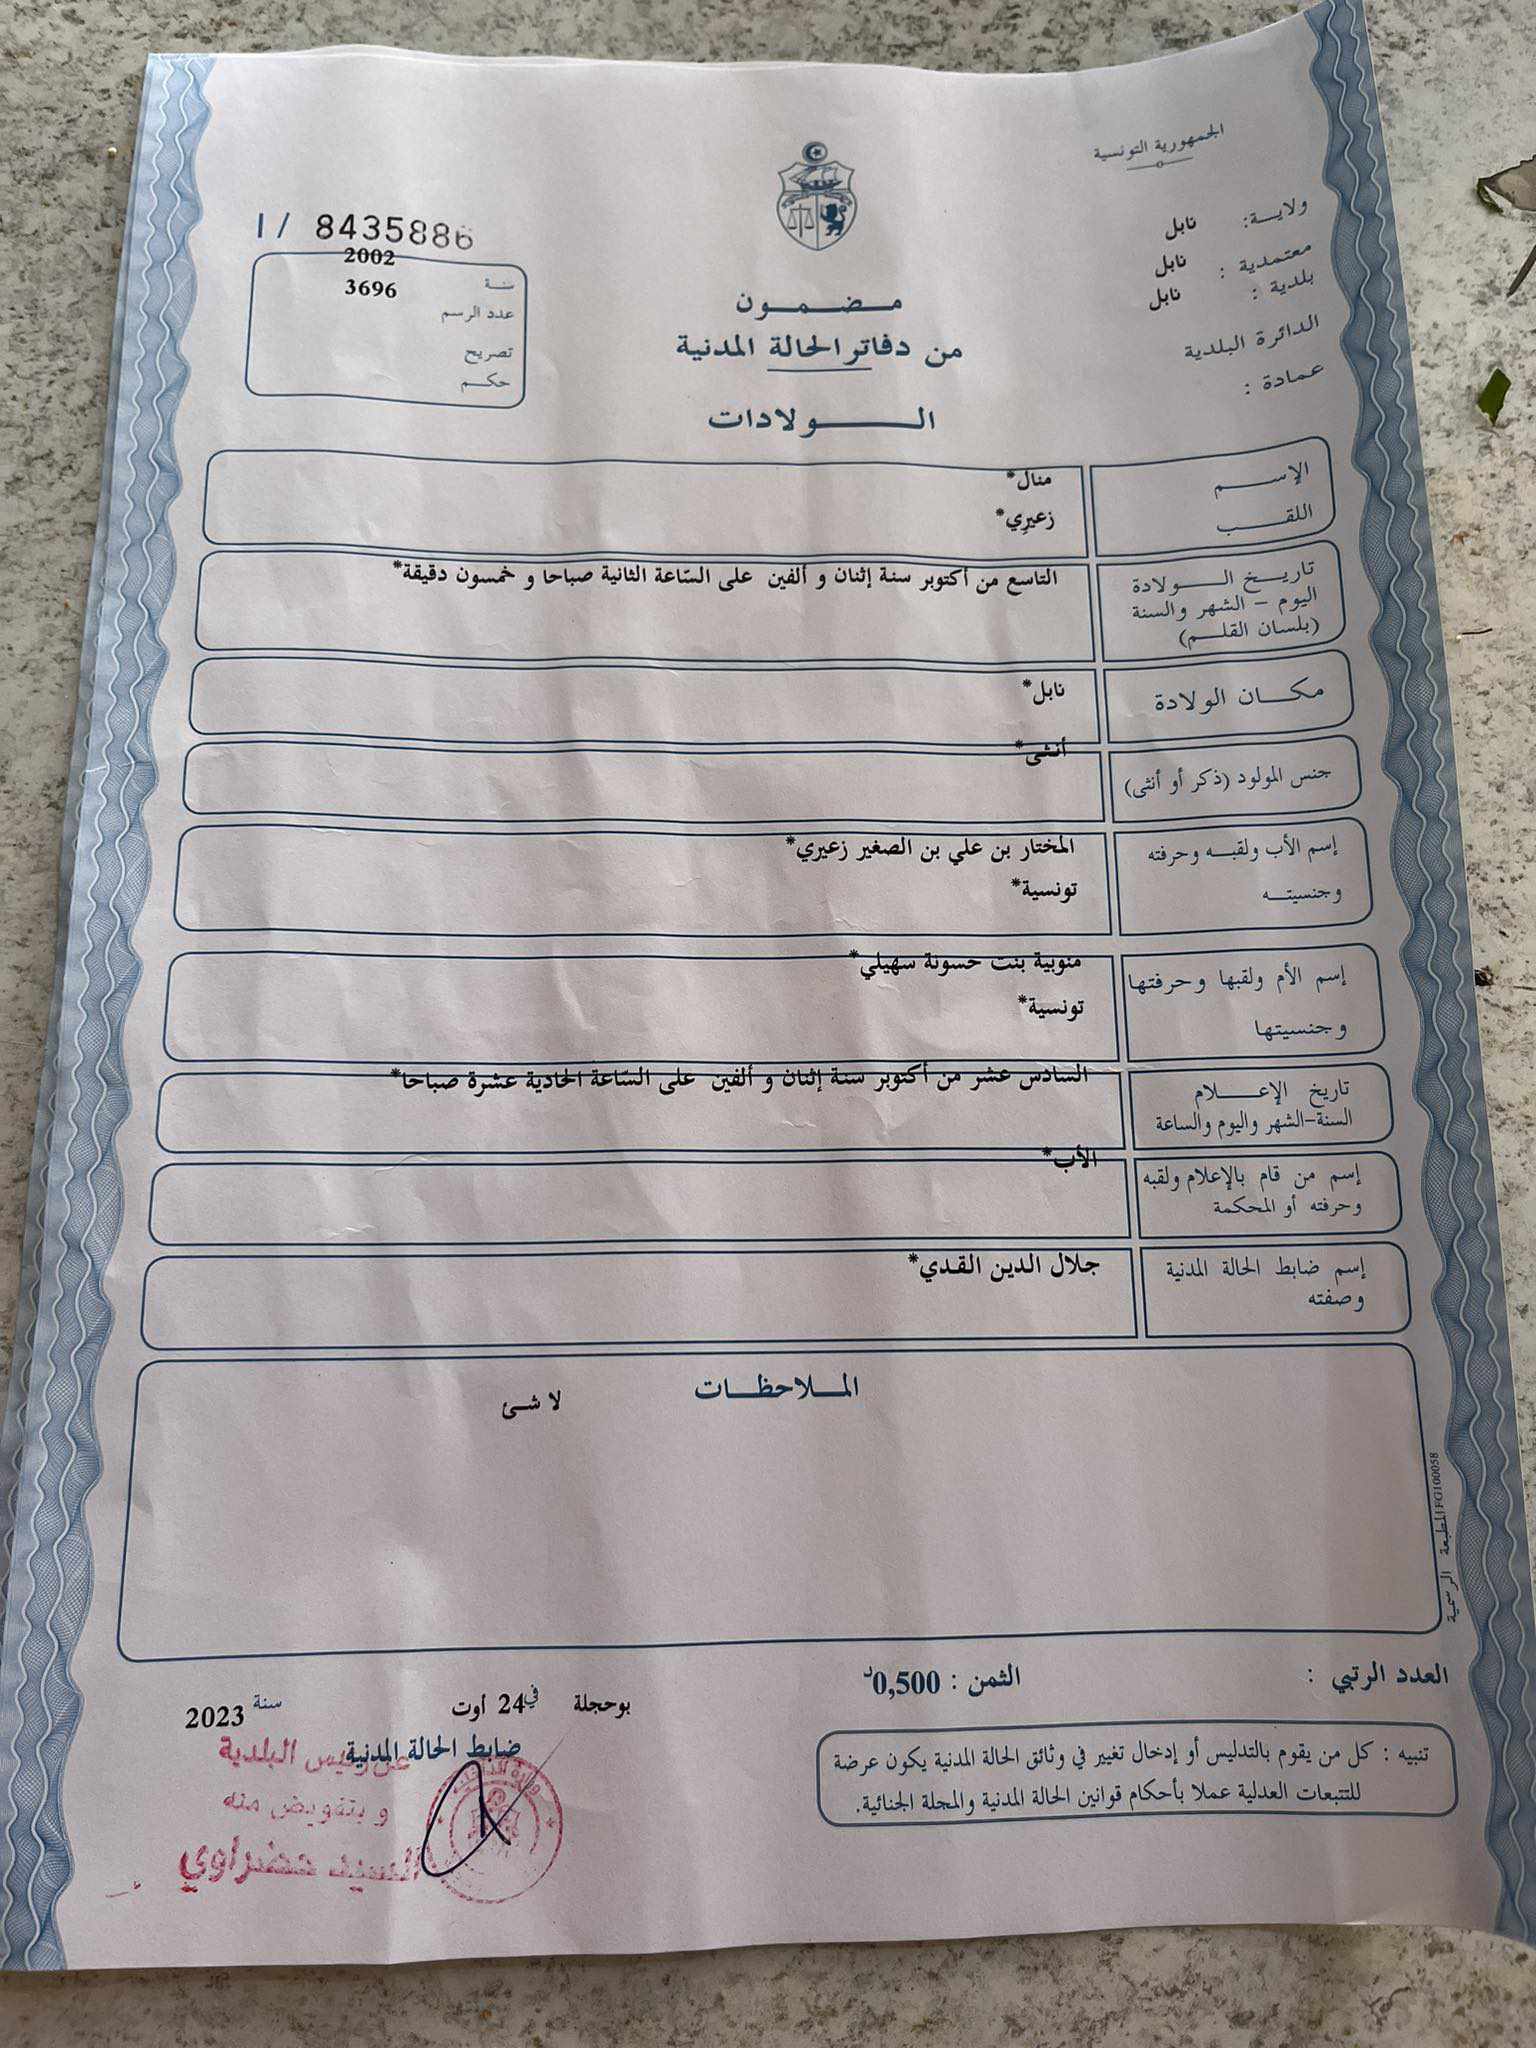 الجمهورية التونسية
ولايـــة: نابل
معتمدية : نابل
بلدية : نابل
الدائرة البلدية
عمادة :
I / 8435886
سنـــة 2002
عدد الرسم 3696
تصريح
حكـــم
مـضـمـون
من دفاتر الحالة المدنية
الـــولادات
الإســـم منال*
اللقـــب زعيري*
تاريـــخ الـــولادة
اليوم – الشهر والسنة
(بلسان القلـــم)
التاسع من أكتوبر سنة إثنان و ألفين على السّاعة الثانية صباحا و خمسون دقيقة*
مكـــان الولادة نابل*
جنس المولود (ذكر أو أنثى) أنثى*
إسم الأب ولقبـــه وحرفته المختار بن علي بن الصغير زعيري*
وجنسيتـــه تونسية*
إسم الأم ولقبها وحرفتها منوبية بنت حسونة سهيلي*
وجنسيتها تونسية*
تاريخ الإعـــلام
السنة-الشهر واليوم والساعة
السادس عشر من أكتوبر سنة إثنان و ألفين على السّاعة الحادية عشرة صباحا*
إسم من قام بالإعلام ولقبه
وحرفته أو المحكمة
الأب*
إسم ضابط الحالة المدنية
وصفته
جلال الدين القدي*
المـــلاحظـــات
لا شئ
المطبعة الرسمية FG100058
العدد الرتبي :
الثمن : 0,500د
بوحجلة في 24 أوت سنة 2023
ضابط الحالة المدنية
عن رئيس البلدية
و بتفويض منه
السيد حضراوي
تنبيه : كل من يقوم بالتدليس أو إدخال تغيير في وثائق الحالة المدنية يكون عرضة
للتتبعات العدلية عملا بأحكام قوانين الحالة المدنية والمجلة الجنائية.